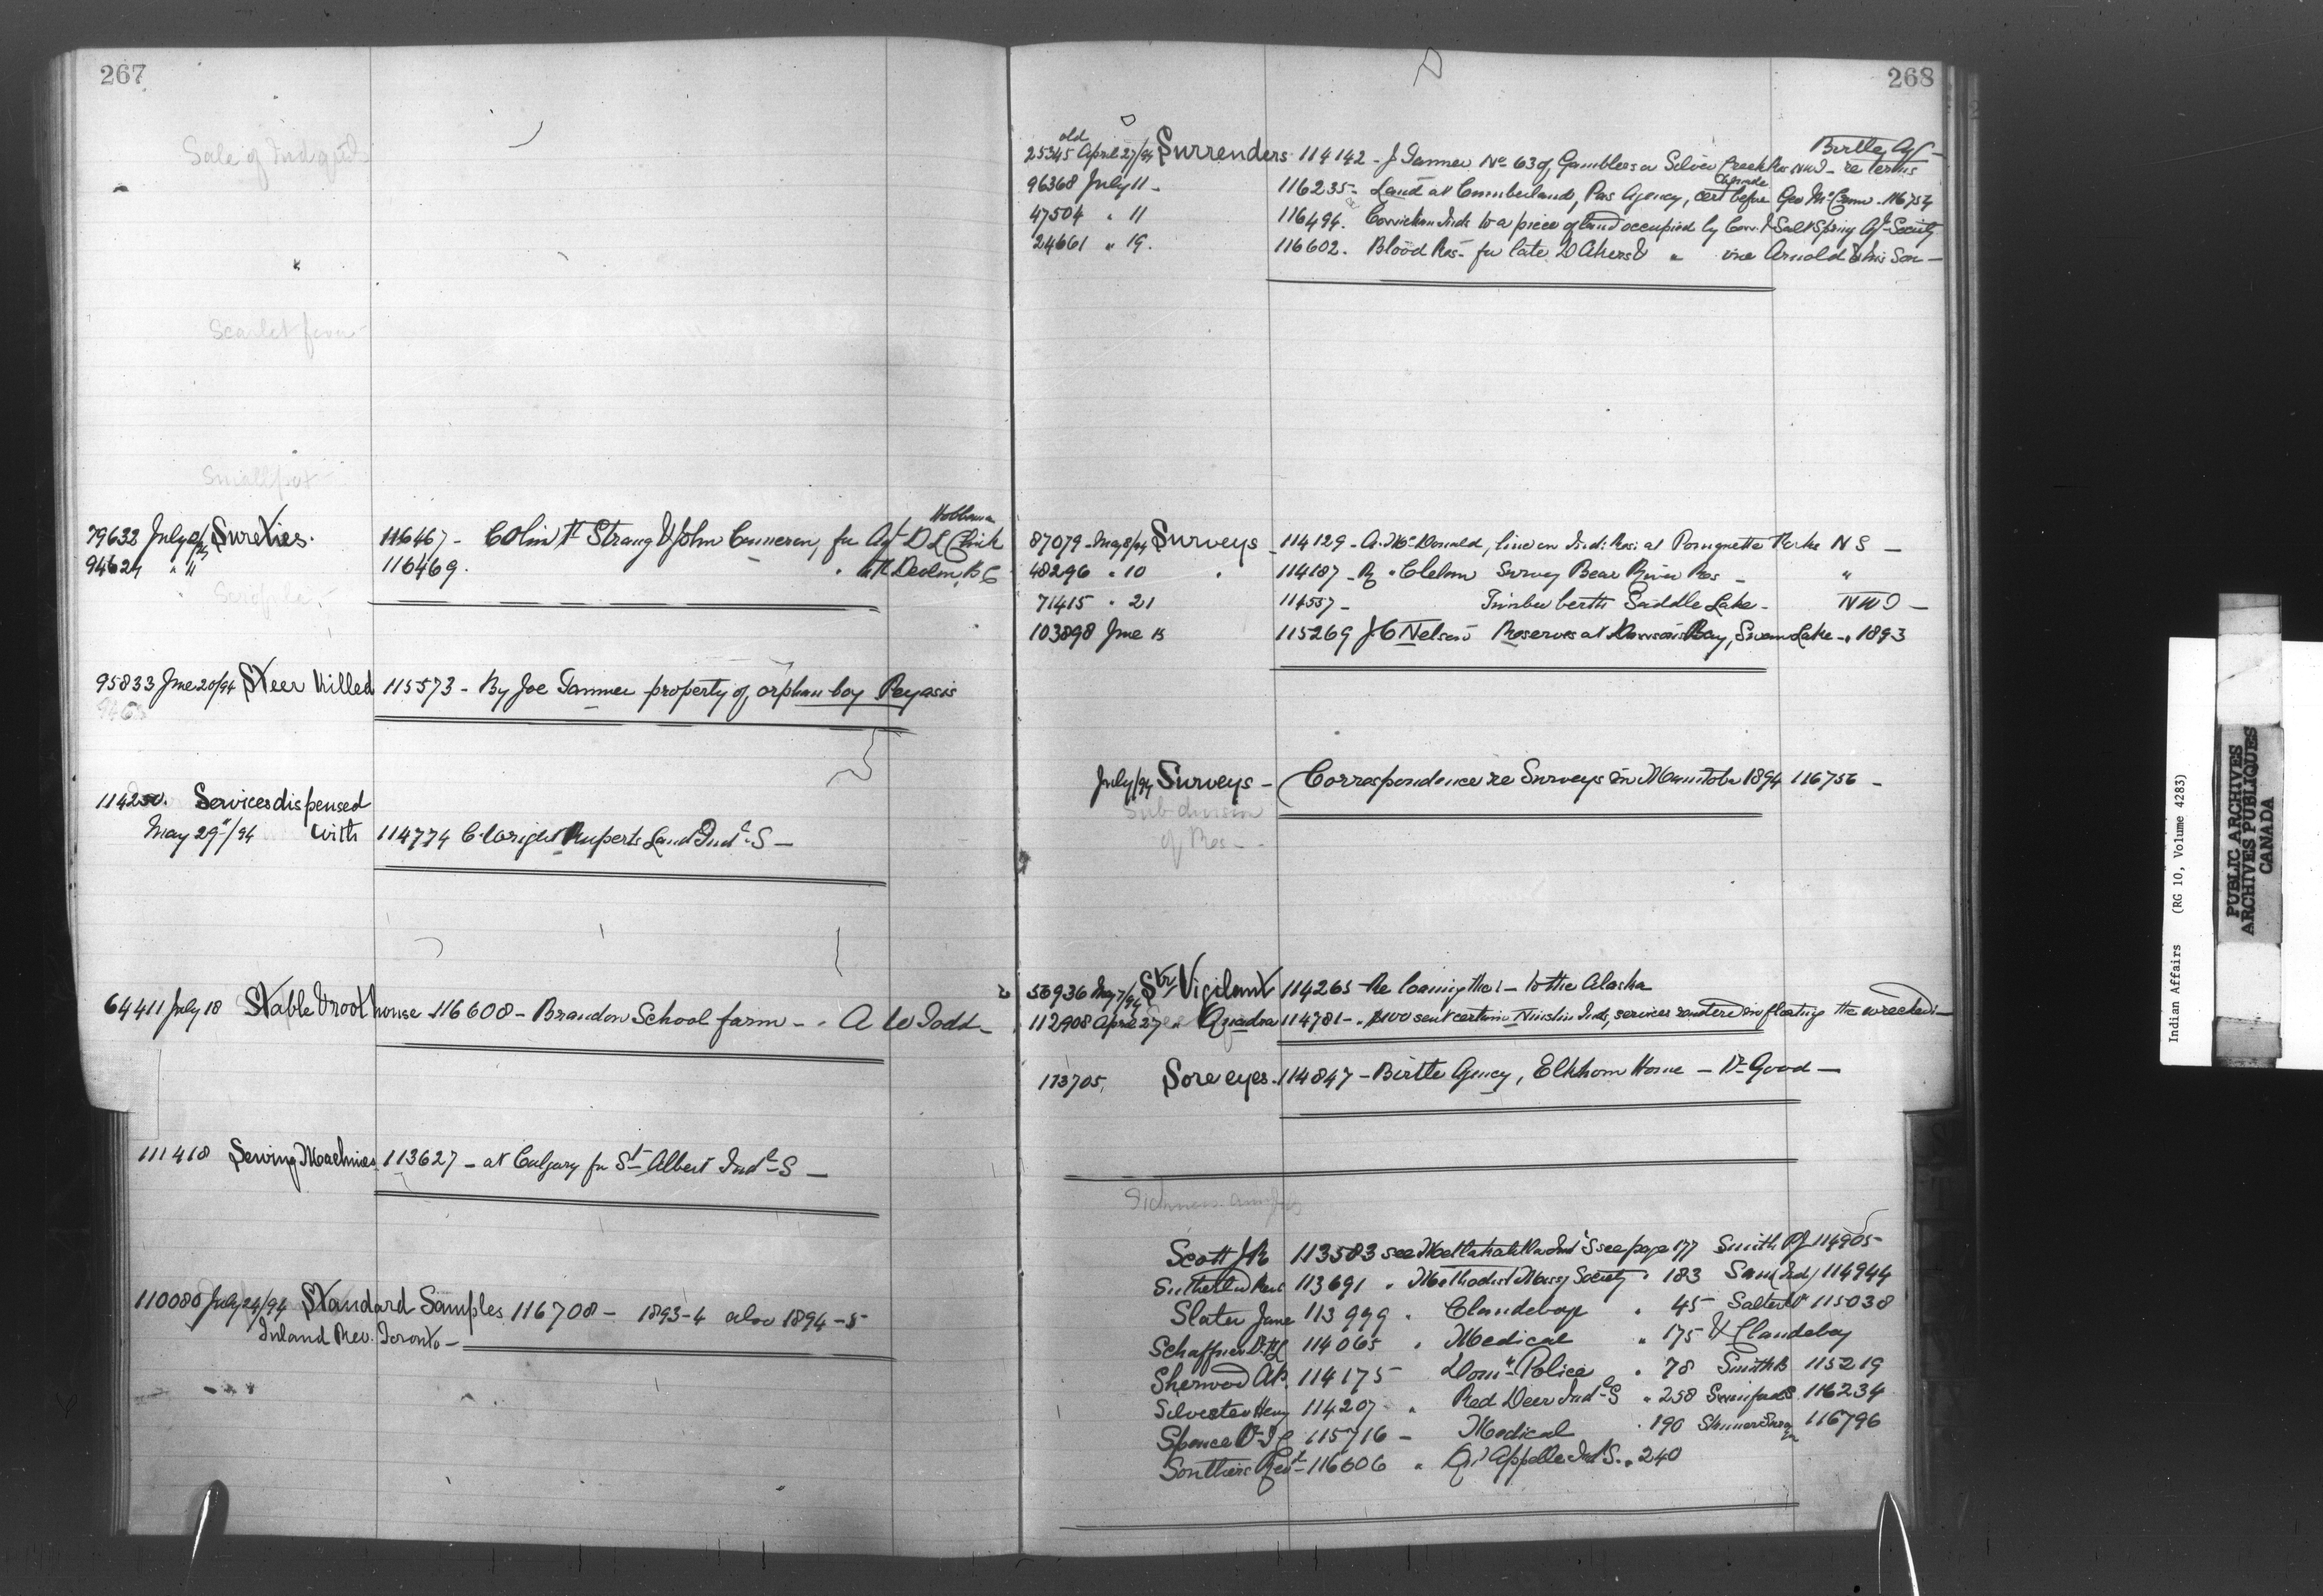 267
Sale of Ind
Scarlet fever
Smallpox
79632 July Sureties. 116467 - Colin Strang & John Cameron, for Agt D L Clink Hobbema
94624 " 11 116469. " Devlin B C
95833 June 20/94 Steer killed 115573 - By Joe Tanner property of orphan boy Peyasis
114250. Services dispensed
May 29th/94 with 114774 C Wright Ruperts Land Indl S -
64411 July 18 Stable & root house 116608 - Brandon School farm - A W Todd
111418 Sewing Machines 113627 - at Calgary for St Albert Indl S -
110080 July 24/94 Standard Samples 116708 - 1893-4 also 1894-5
Inland Rev. Toronto -
268
old
25345 April 27/94 Surrenders 114142 - J Tanner No 63 of Gamblers or Silver Creek Res NWT - re terms Birtle Agy -
96368 July 11 - 116235 - Land at Cumberland, Pas Agency, cert before Geo McCrum 116754
47504 " 11 116494. Cowichan Inds to a piece of land occupied by Cow. & Salt Spring Ag Society
24661 " 19. 116602. Blood Res - for late D Akers & " one Arnold & his Son -
87079 - May 8/94 Surveys 114129 - A. McDonald, line on Ind: Res: at Pomquette Forks N S -
48296 " 10 " 114187 - Survey Bear River Res - "
71415 " 21 114557 - Timber berth Saddle Lake - NWT -
103898 June 15 115269 J C Nelson Reserves at Dawson Bay, Swan Lake - 1893
July/94 Surveys - Correspondence re Surveys in Manitoba 1894 116756 -
Subdivision
of Res -
56936 May 7/94 Str Vigilant 114265 Re loaning the - to the Alaska
112908 April 27 " Quadra 114781 - $100 sent certain Inds, services rendered in floating the wrecked -
113705, Sore eyes. 114847 - Birtle Agency, Elkhorn Home - Dr Good -
Scott J R 113583 see Metlakahtla Indl S see page 177 Smith P J 114905
Sutherland 113691 " Methodist Missy Society " 183 Sam (Ind) 114944
Slater Jane 113999 " Clandeboye " 45 Salter 115038
Schaffner Dr 114065 " Medical " 175 & Clandeboy
Sherwood A P. 114175 Domn Police " 78 Smith B 115219
Silvester Henry 114207 " Red Deer Indl S " 258 116234
Spence Dr 115716 - Medical " 190 116796
Southiers 116606 " Qu'Appelle Ind S. " 240
Indian Affairs (RG 10, Volume 4283)
PUBLIC ARCHIVES
ARCHIVES PUBLIQUES
CANADA